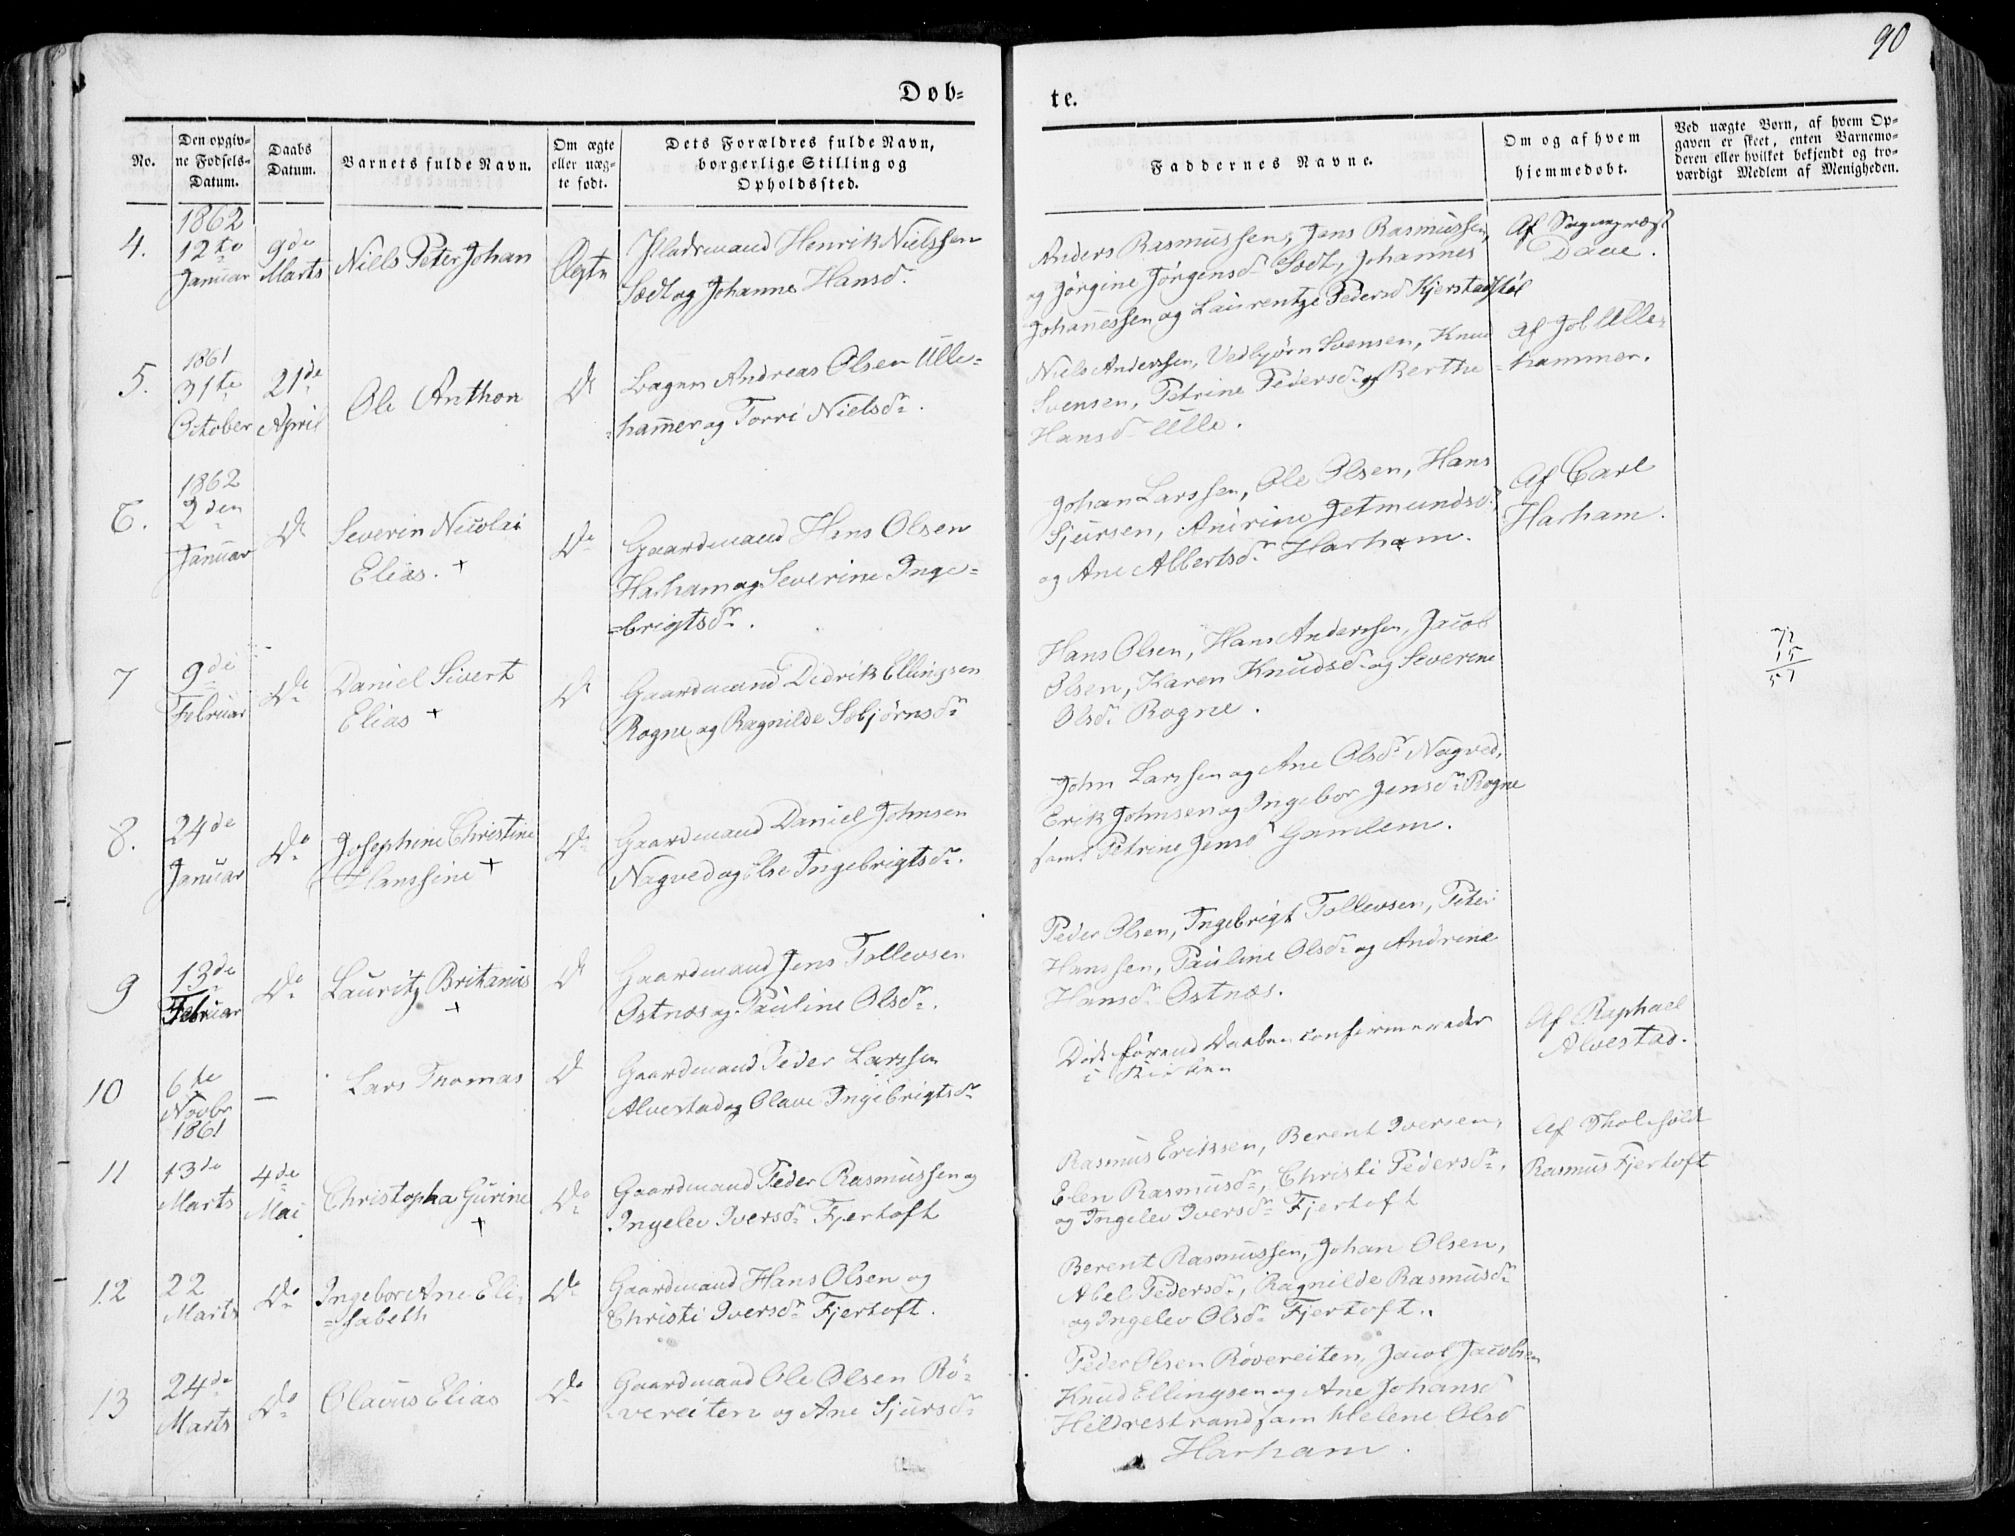 90
Døb-
te.
No.
Den opgiv-
ne Fødsels-
Datum.
Daabs
Datum.
Barnets fulde Navn.
Om ægte
eller uæg-
te født.
Dets Forældres fulde Navn,
borgerlige Stilling og
Opholdssted.
Faddernes Navne.
Om og af hvem
hjemmedøbt.
Ved uægte Børn, af hvem Op-
gaven er skeet, enten Barnemo-
deren eller hvilket bekjendt og tro-
værdigt Medlem af Menigheden.
4.
1862
12te
Januar
9de
Marts
Niels Peter Johan
Ægte
Pladsmand Henrik Nielssen
Sædt og Johanne Hansd.
Anders Rasmussen, Jens Rasmussen,
og Jørgine Jørgensd. Sædt, Johannes
Johanessen og Laurentze Pedersd Kjerstad
Af Sognepræst
Daae.
5.
1861
31te
October
21de
April
Ole Anthon
Do
Andreas Olsen Ulle-
=hamer og Torri Nielsdr.
Niels Anderssen, Vedbjørn Svensen, Knud
Svensen, Petrine Pedersdr og Berthe
Hansdr Ulle.
Af Job Ulle-
=hammer.
6.
1862
2den
Januar
Do
Severin Nicolai
Elias. +
Do
Gaardmand Hans Olsen
Harham og Severine Inge-
=brigtsdr.
Johan Larssen, Ole Olsen, Hans
Sjursen, Anirine Jetmundsd.
og Ane Albertsdr Harham.
Af Carl
Harham.
7
9de
Februar
Do
Daniel Sivert
Elias +
Do
Gaardmand Didrik Ellingsen
Rogne og Ragnilde Sebjørnsdr
Hans Olsen, Hans Anderssen, Jacob
Olsen, Karen Knudsdr og Severine
Olsdr Rogne.
72
15
57
8.
24de
Januar
Do
Josephine Christine
Hanssine +
Do
Gaardmand Daniel Johnsen
Nogved og Else Ingebrigtsdr.
John Larssen og Ane Olsdr Nogved,
Erik Johnsen og Ingebor Jensdr Rogne
samt Petrine Jensd Gamlem.
9
13de
Februar
Do
Lauritz Britanius
+
Do
Gaardmand Jens Tollevsen
Ostnæs og Pauline Olsdr.
Peder Olsen, Ingebrigt Tollevsen, Peter
Hanssen, Pauline Olsdr og Andrine
Hansdr Ostnæs.
10
6te
Novbr
1861
—
Lars Thomas
Do
Gaardmand Peder Larssen
Alvestad og Olave Ingebrigtsdr
Død førend Daaben confirmeredes
i Kirken
Af Raphael
Alvestad.
11
13de
Marts
4de
Mai
Christopha Gurine
+
Do
Gaardmand Peder Rasmussen og
Ingelev Iversdr Fjertoft
Rasmus Eriksen, Berent Iversen,
Elen Rasmusdr, Christi Pedersdr,
og Ingelev Iversdr Fjertoft
Af Skoleholdr
Rasmus Fjertoft
12
22
Marts
Do
Ingebor Ane Eli-
=sabeth
Do
Gaardmand Hans Olsen og
Christi Iversdr Fjertoft.
Berent Rasmussen, Johan Olsen,
Abel Pedersdr, Ragnilde Rasmusdr
og Ingelev Olsdr Fjertoft.
13
24de
Marts
Do
Olaus Elias
Do
Gaardmand Ole Olsen Rö-
=vereiten og Ane Sjursdr
Peder Olsen Røvereiten, Jacob Jacobsen
Knud Ellingsen og Ane Johansd
Hildrestrand sam Helene Olsd
Harham.